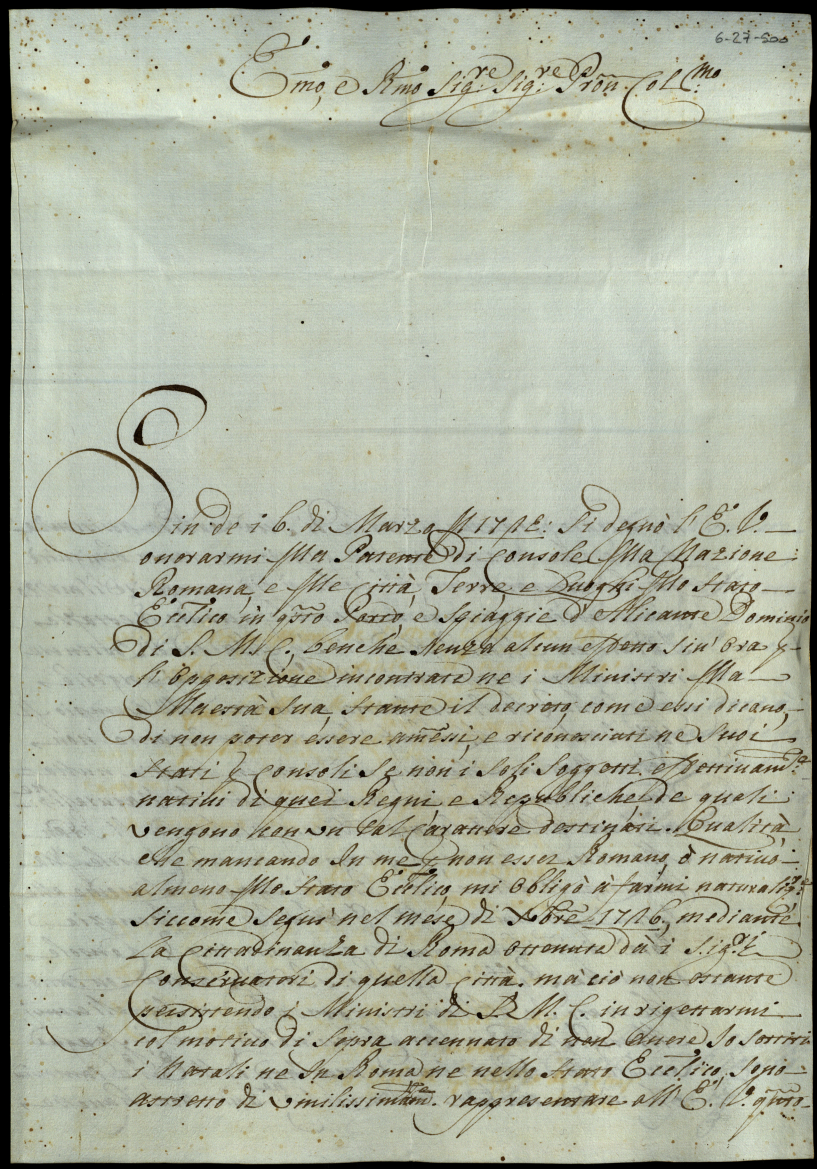 6-27-500
Emo, e Rmo Sig:re Sig:re Pron Col:mo
Sin de i 6. di Marzo si degnò l'E. V.
onorarmi della Patente di Console della Nazione
Romana, e delle Città, Terre, e Luoghi dello stato
Ecc͂lico, in q͂sto Porto, e spiaggie d'Alicante Dominio
di S. M. C. benche senza alcun effetto sin' ora
l'opposizione incontrata ne i Ministri della
Maestà Sua, stante il decreto, come essi dicano,
di non poter essere am͂essi, e riconosciuti ne suoi
stati p͂ Consoli se non i soli soggetti effettivam:te
nativi di quei Regni e Republiche de quali
vengono con un tal carattere destinati. Qualità,
che mancando In me p͂ non esser Romano, ò nativo
almeno dello stato Ecc͂lico, mi obligò à farmi
siccome seguì nel mese di Xbre 1716, mediante
La Cittadinanza di Roma ottenuta dà i Sig:ri
Conservatori di quella città. mà ciò non ostante
persistendo i Ministri di S. M. C. in rigettarmi
col motivo di sopra accennato di non avere Io sortiti
i Natali ne In Roma ne nello stato Ecc͂lico, sono
astretto di umilissimam:te rappresentare all' E. V. q͂sto